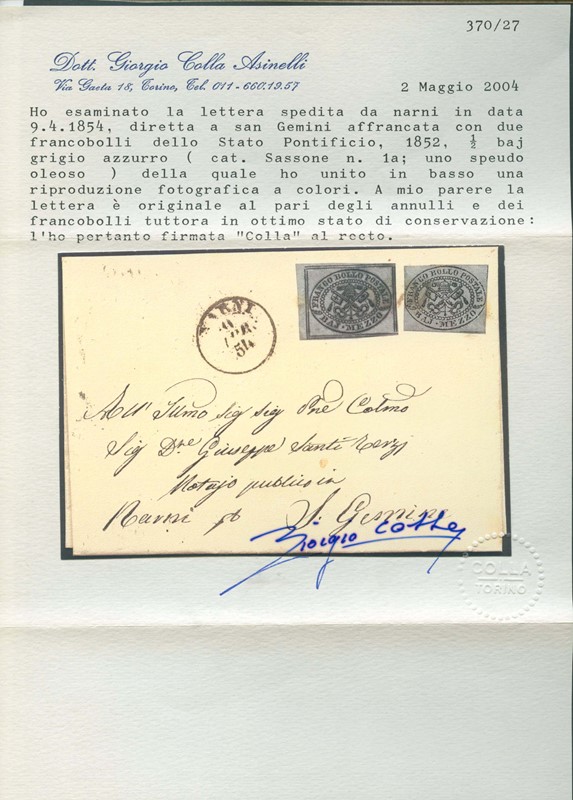 370/27
Dott. Giorgio Colla Asinelli
Via Gaeta 18, Torino, Tel. 011-660.19.57
2 Maggio 2004
Ho esaminato la lettera spedita da narni in data
9.4.1854, diretta a san Gemini affrancata con due
francobolli dello Stato Pontificio, 1852, ½ baj
grigio azzurro ( cat. Sassone n. 1a; uno speudo
oleoso ) della quale ho unito in basso una
riproduzione fotografica a colori. A mio parere la
lettera è originale al pari degli annulli e dei
francobolli tuttora in ottimo stato di conservazione:
l'ho pertanto firmata "Colla" al recto.
FRANCO BOLLO POSTALE
MEZZO
FRANCO BOLLO POSTALE
MEZZO
NARNI
APR
54
All'
sig sig
Colmo
Sig Dre Giuseppe Santi Terzj
Notajo publico in
Narni S. Gemini
Giorgio Colla
COLLA
TORINO